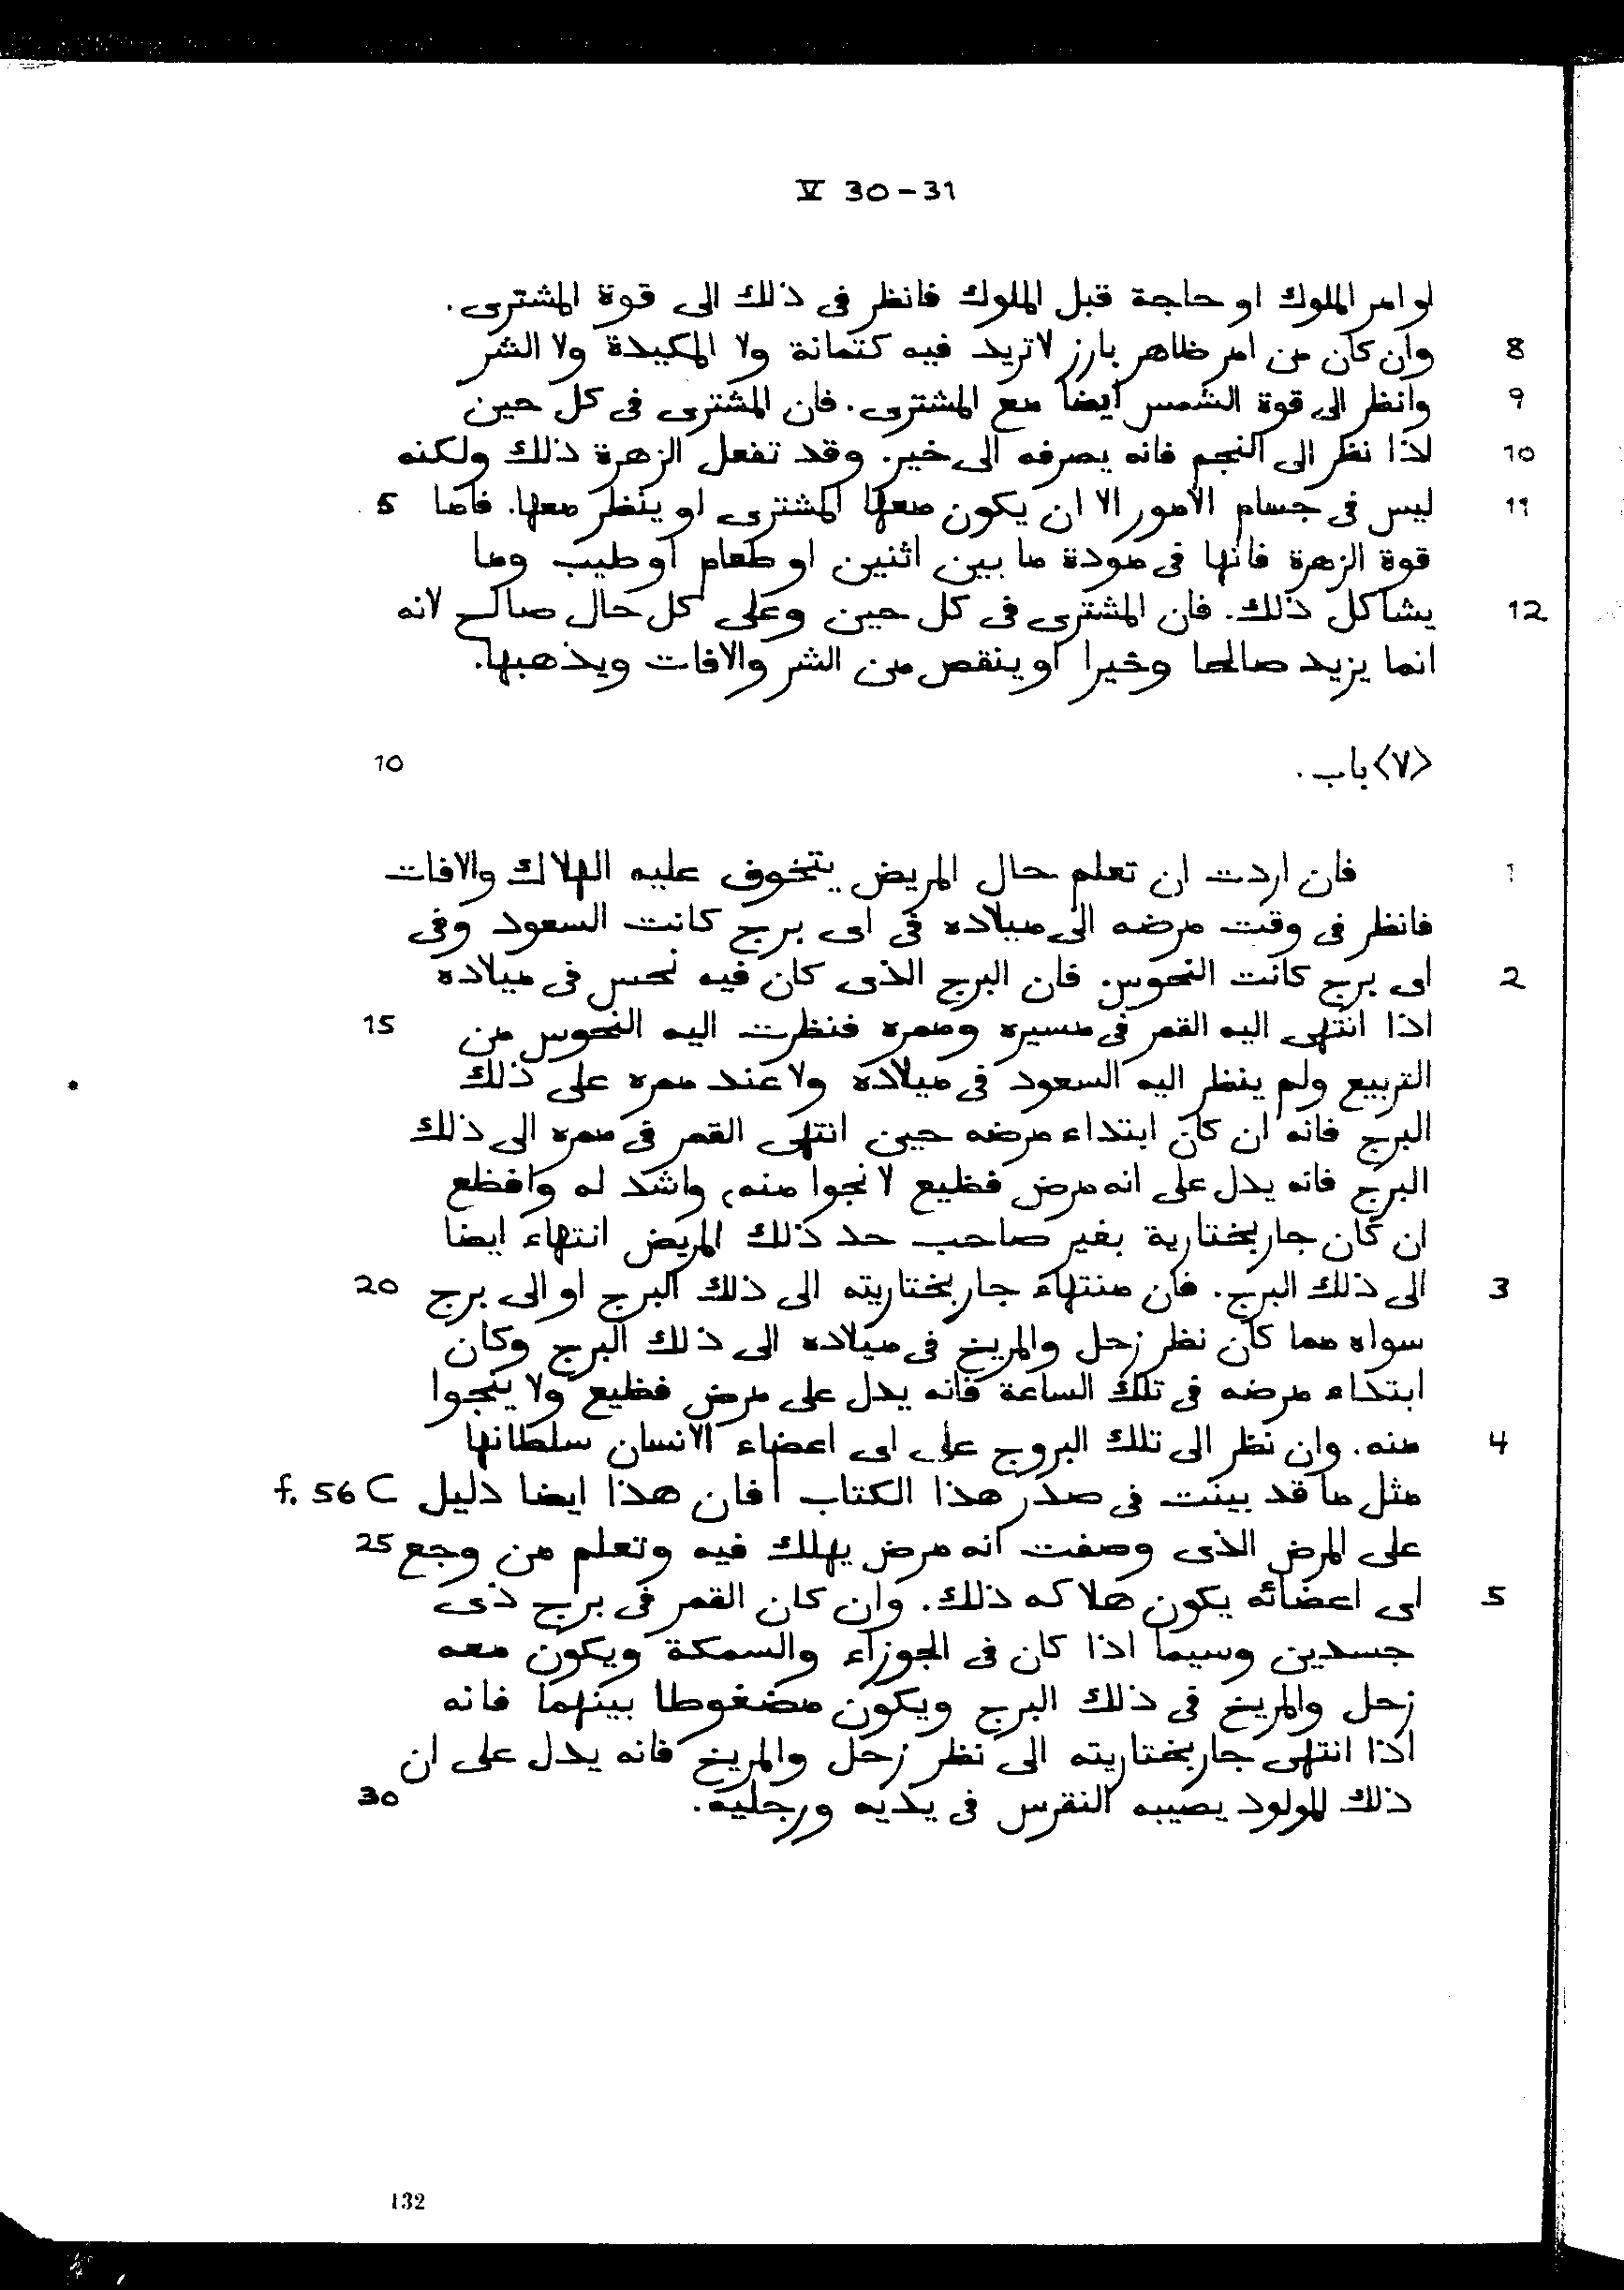 V 30-31
او امر الملوك او حاجة قبل الملوك فانظر فى ذلك الى قوة المشترى.
8 وان كان من امر ظاهر بارز لا تريد فيه كتمانة ولا المكيدة ولا الشر
9 وانظر الى قوة الشمس ايضا مع المشترى. فان المشترى فى كل حين
10 اذا نظر الى النجم فانه يصرفه الى خير. وقد تفعل الزهرة ذلك ولكنه
11 ليس فى جسام الامور الا ان يكون معها المشترى او ينظر معها. فاما 5
قوة الزهرة فانها فى مودة ما بين اثنين او طعام او طيب وما
12 يشاكل ذلك. فان المشترى فى كل حين وعلى كل حال صالح لانه
انما يزيد صالحا وخيرا او ينقص من الشر والافات ويذهبها.
<٧> باب. 10
1 فان اردت ان تعلم حال المريض يتخوف عليه الهلاك والافات
فانظر فى وقت مرضه الى ميلاده فى اى برج كانت السعود وفى
2 اى برج كانت النحوس. فان البرج الذى كان فيه نحس فى ميلاده
اذا انتهى اليه القمر فى مسيره وممره فنظرت اليه النحوس من 15
التربيع ولم ينظر اليه السعود فى ميلاده ولا عند ممره على ذلك
البرج فانه ان كان ابتداء مرضه حين انتهى القمر فى ممره الى ذلك
البرج فانه يدل على انه مرض فظيع لا نجوا منه، واشد له وافظع
ان كان جاربختارية بغير صاحب حد ذلك المريض انتهاء ايضا
3 الى ذلك البرج. فان منتهاء جاربختاريته الى ذلك البرج او الى برج 20
سواه مما كان نظر زحل والمريخ فى ميلاده الى ذلك البرج وكان
ابتداء مرضه فى تلك الساعة فانه يدل على مرض فظيع ولا ينجوا
4 منه. وان نظر الى تلك البروج على اى اعضاء الانسان سلطانها
مثل ما قد بينت فى صدر هذا الكتاب | فان هذا ايضا دليل f. 56 C
على المرض الذى وصفت انه مرض يهلك فيه وتعلم من وجع 25
5 اى اعضائه يكون هلاكه ذلك. وان كان القمر فى برج ذى
جسدين وسيما اذا كان فى الجوزاء والسمكة ويكون معه
زحل والمريخ فى ذلك البرج ويكون مضغوطا بينهما فانه
اذا انتهى جاربختاريته الى نظر زحل والمريخ فانه يدل على ان
ذلك المولود يصيبه النقرس فى يديه ورجليه. 30
132